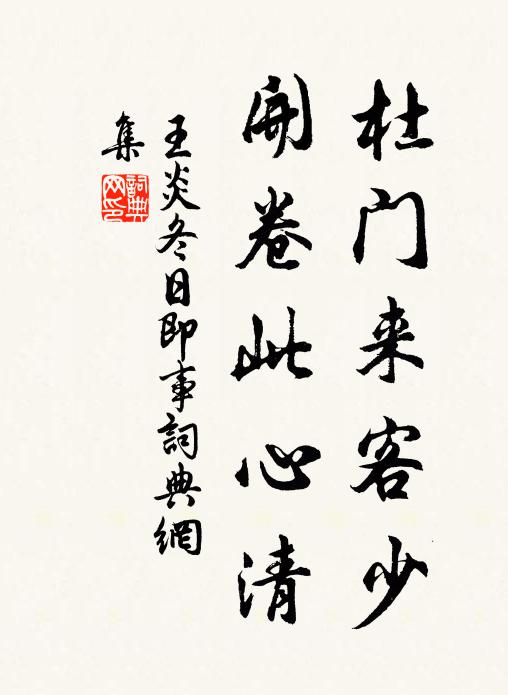 杜门来客少
開卷此心清
王炎冬日即事詞典網
集
詞典
网印